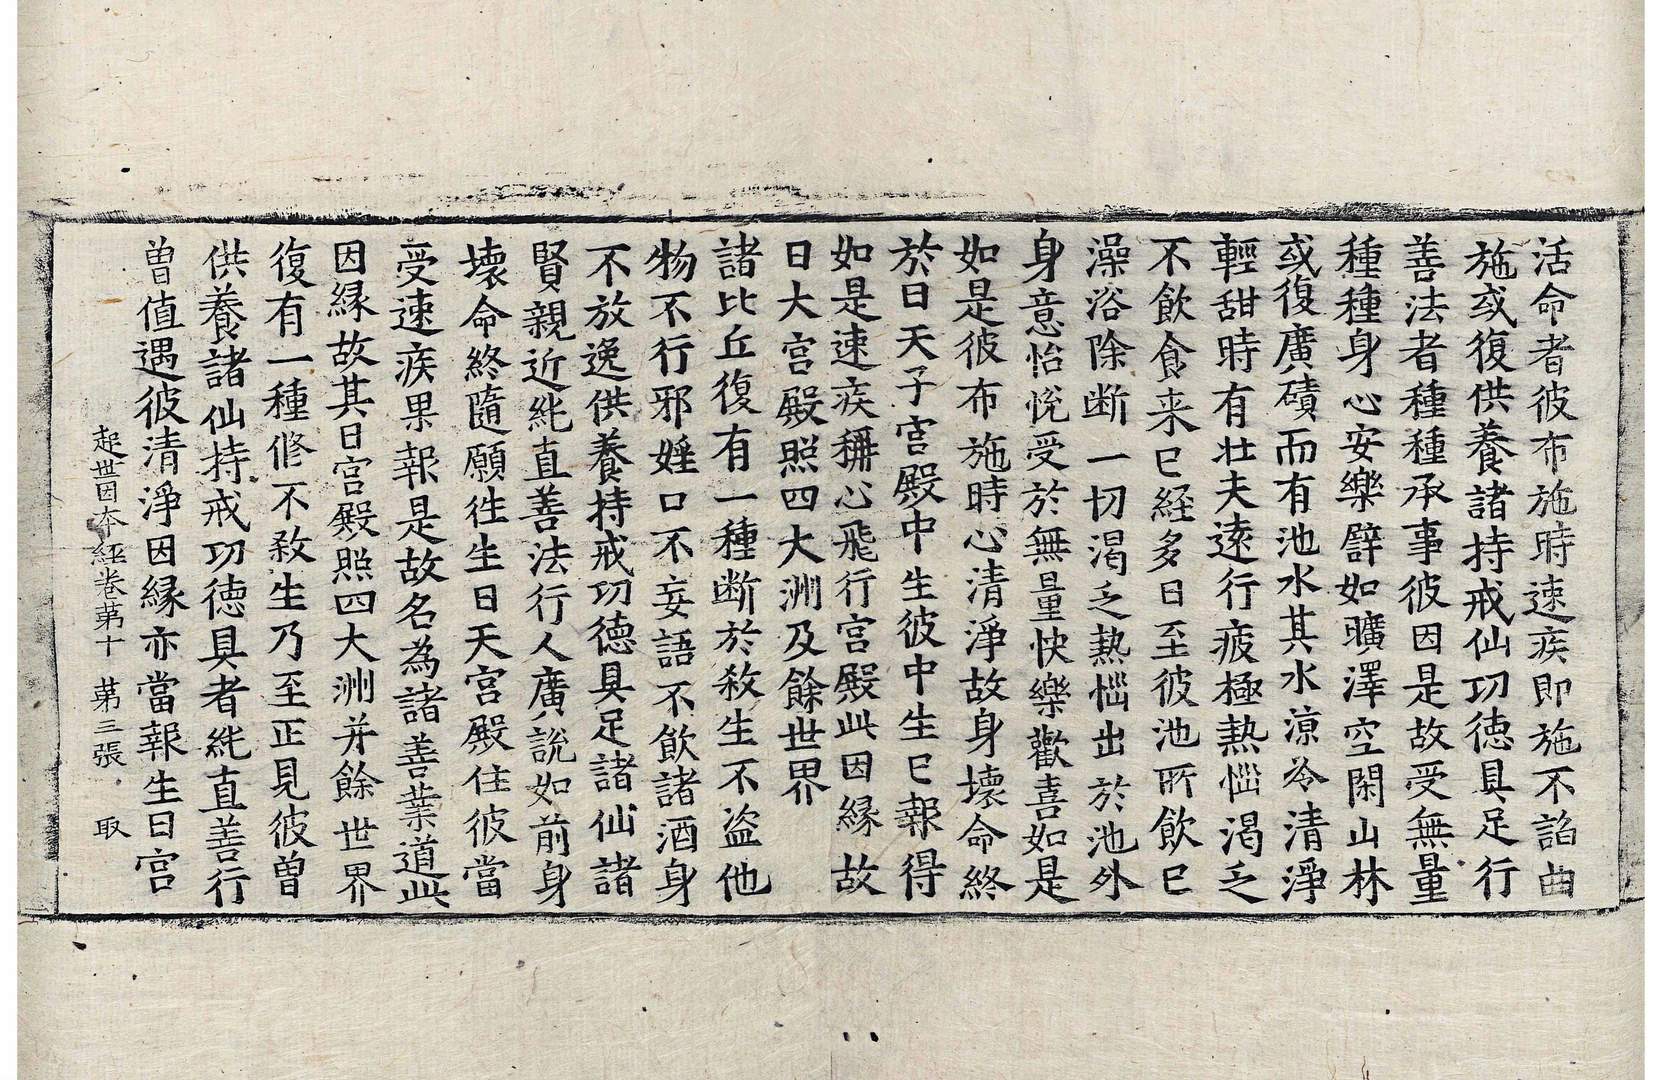 活命者彼布施時速疾即施不諂曲
施或復供養諸持戒仙功徳具足行
善法者種種承事彼因是故受無量
種種身心安樂譬如曠澤空閑山林
或復廣磧而有池水其水涼冷清淨
輕甜時有壮夫遠行疲極熱惱渇乏
不飲食来已經多日至彼池所飲已
澡浴除断一切渇乏熱惱出於池外
身意怡悅受於無量快樂歡喜如是
如是彼布施時心清淨故身壞命終
於日天子宮殿中生彼中生已報得
如是速疾稱心飛行宮殿此因縁故
日大宮殿照四大洲及餘世界
諸比丘復有一種断於殺生不盗他
物不行邪婬口不妄語不飲諸酒身
不放逸供養持戒功德具足諸仙諸
賢親近純直善法行人廣說如前身
壞命終隨願往生日天宮殿住彼當
受速疾果報是故名為諸善業道此
因縁故其日宮殿照四大洲并餘世界
復有一種修不殺生乃至正見彼曽
供養諸仙持戒功徳具者純直善行
曽值遇彼清淨因縁亦當報生日宮
起世因本經卷第十 第三張 取